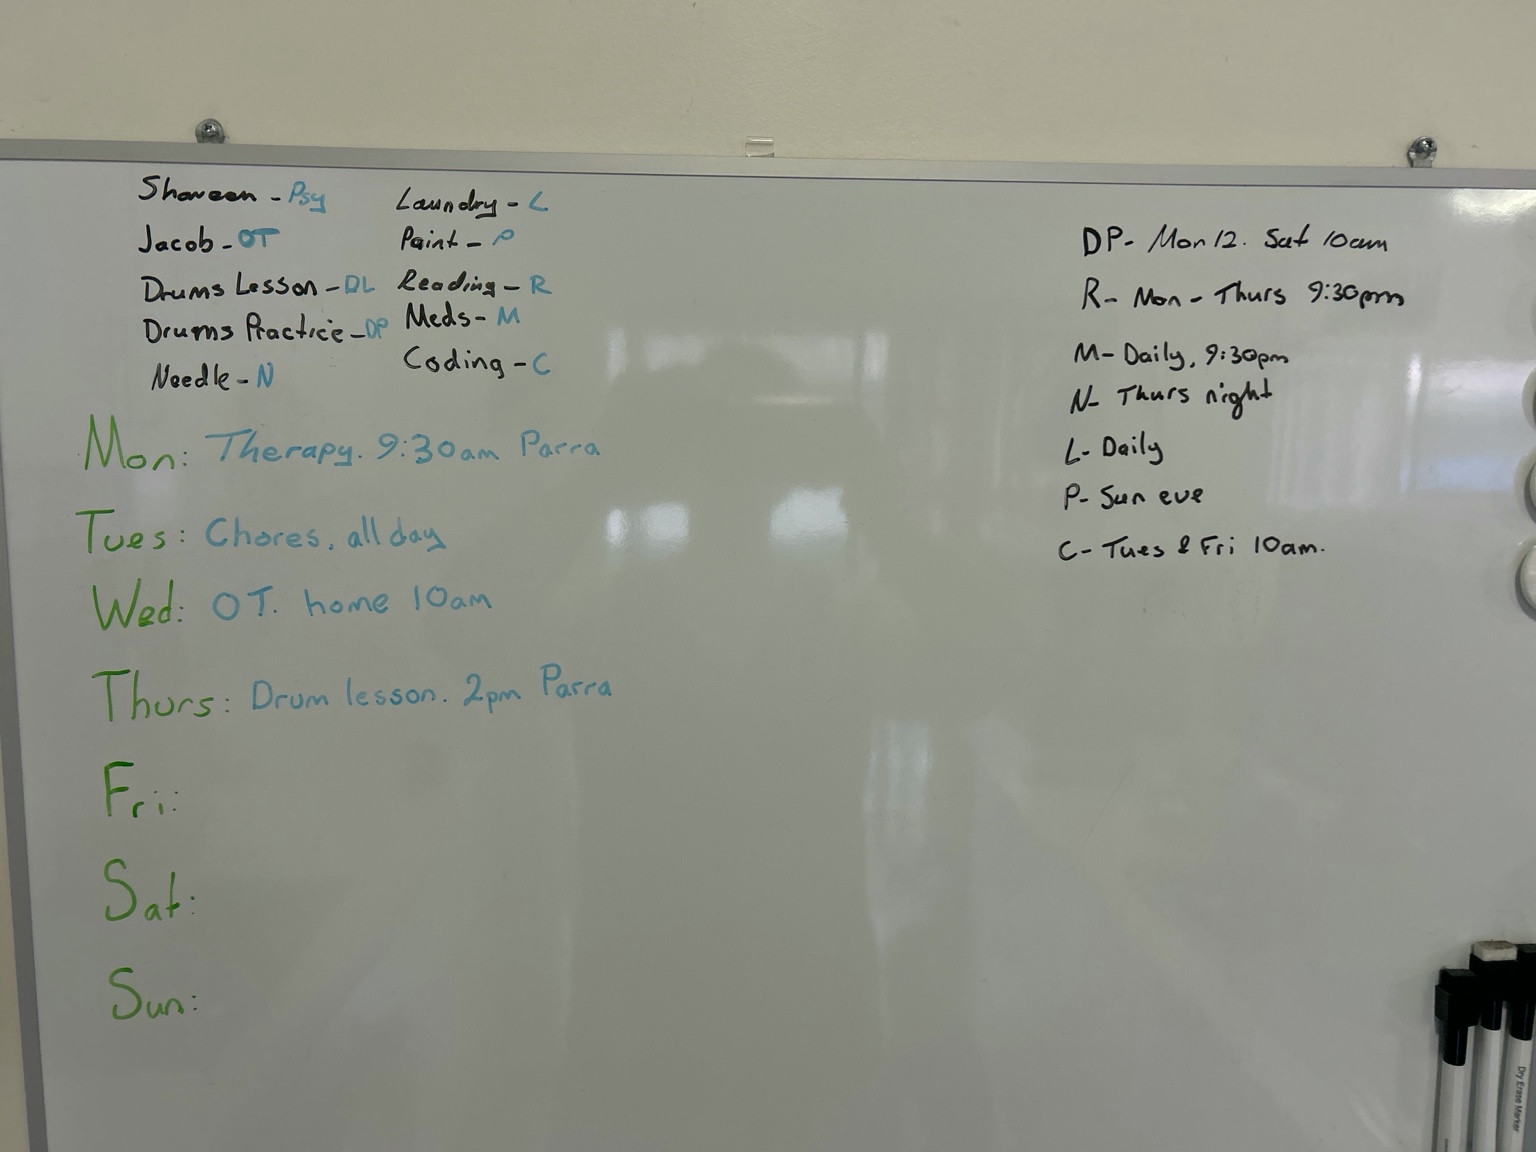 Shaveen - Psy
Jacob - OT
Drums Lesson - DL
Drums Practice - DP
Needle - N
Laundry - L
Paint - P
Reading - R
Meds - M
Coding - C
Mon: Therapy. 9:30am Parra
Tues: Chores, all day
Wed: OT. home 10am
Thurs: Drum lesson. 2pm Parra
Fri:
Sat:
Sun:
DP- Mon 12. Sat 10am
R- Mon - Thurs 9:30pm
M- Daily, 9:30pm
N- Thurs night
L- Daily
P- Sun eve
C- Tues & Fri 10am.
Dry Erase Marker